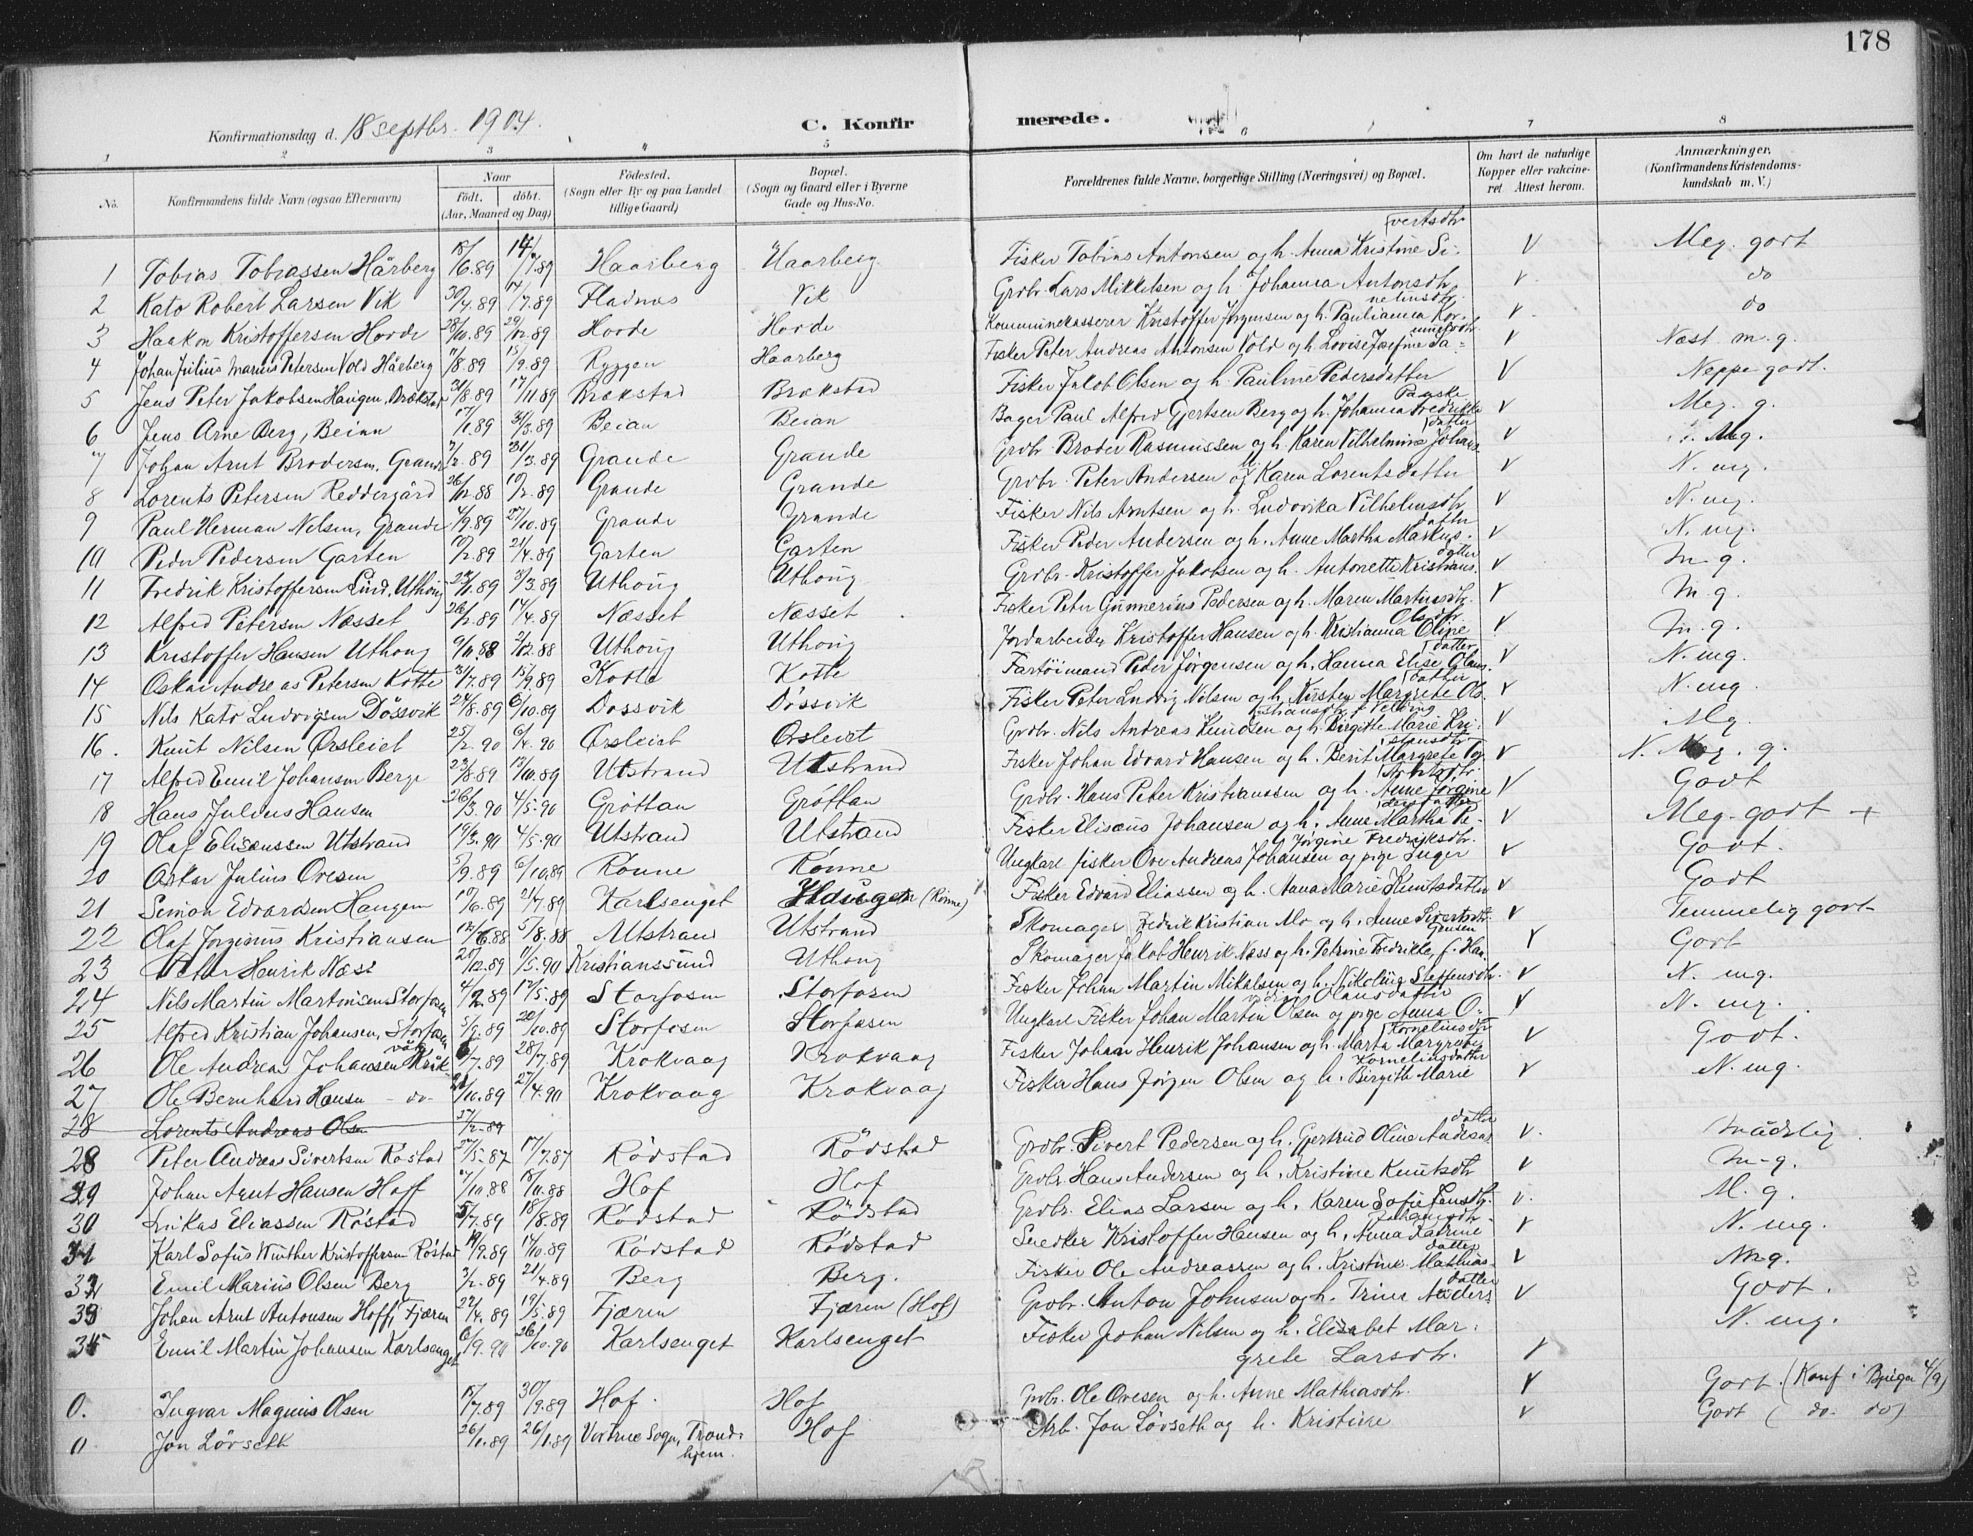 178
Konfirmationsdag d. 18 septbr. 1904.
C. Konfirmerede.
1 2 3 4 5 6 7 8
No. Konfirmandens fulde Navn (ogsaa Efternavn) Naar Født. døbt. (Aar, Maaned og Dag) Fødested. (Sogn eller By og paa Landet tillige Gaard) Bopæl. (Sogn og Gaard eller i Byerne Gade og Hus-No. Forældrenes fulde Navne, borgerlige Stilling (Næringsvei) og Bopæl. Om havt de naturlige Kopper eller vakcineret Attest herom. Anmærkninger. (Konfirmandens Kristendomskundskab m. V.)
1 Tobias Tobiassen Hårberg 18/6.89 14/7.89 Haarberg Haarberg Fisker Tobias Antonsen og h. Anna Kristine Sivertsdtr V Meg. godt
2 Kato Robert Larsen Vik 30/4.89 14/7.89 Fladnes Vik Grdbr. Lars Mikkelsen og h. Johanna Antonsdtr V do
3 Haakon Kristoffersen Hovde 28/10.89 29/12.89 Hovde Hovde Kommunekasserer Kristoffer Jørgensen og h. Paulianna Kornelinsdtr. V do
4 Johan Julius Marius Petersen Vold Hårberg 11/8.89 15/9.89 Ryggen Haarberg Fisker Peter Andreas Antonsen Vold og h. Lovise Josefine V Næst m. g.
5 Jens Peter Jakobsen Haugen, Brækstad 31/8.89 17/11.89 Brækstad Brækstad Fisker Jakob Olsen og h. Pauline Pedersdatter V Neppe godt.
6 Jens Arne Berg, Beian 17/1.89 31/3.89 Beian Beian Bager Paul Alfred Gjertsen Berg og h. Johanna Fredrikke Paaske V Meg. g.
7 Johan Arnt Brodersen, Grande 7/2.89 31/3.89 Grande Grande Grdbr. Broder Rasmussen og h. Karen Vilhelmine Johansdatter V Mg.
8 Lorents Petersen Reddergård 26/12.88 10/2.89 Grande Grande Grdbr. Peter Andersen og Karen Lorentsdatter V N. mg.
9 Paul Herman Nilsen, Grande 4/9.89 27/10.89 Grande Grande Fisker Nils Arntsen og h. Ludovika Vilhelmsdtr. V N. mg.
10 Peder Pedersen Garten 10/2.89 21/4.89 Garten Garten Fisker Peder Andersen og h. Anne Martha Markusdatter V N. mg.
11 Fredrik Kristoffersen Lund, Uthoug 22/1.89 3/3.89 Uthoug Uthoug Grdbr. Kristoffer Jakobsen og h. Antonette Kristiansdatter V m. g.
12 Alfred Petersen Næsset 26/2.89 14/4.89 Næsset Næsset Fisker Peter Gunnerius Pedersen og h. Maren Martinsdtr. V M. g.
13 Kristoffer Hansen Uthoug 9/10.88 2/12.88 Uthoug Uthoug Jordarbeider Kristoffer Hansen og h. Kristianna Oline Olsdtr V M. g.
14 Oskar Andreas Petersen Kotte 31/7.89 15/9.89 Kotte Kotte Fartøimand Peter Jørgensen og h. Hanna Elise Olausdatter V N. mg.
15 Nils Kato Ludvigsen Døssvik 24/8.89 6/10.89 Døssvik Døssvik Fisker Peter Ludvig Nilsen og h. Kirsten Margrete Olsdatter V N. mg.
16. Knut Nilsen Ørsleiet 25/2.90 6/4.90 Ørsleiet Ørsleiet Grdbr. Nils Andreas Knudsen og h. Birgitte Marie Kristiansdtr. V Mg.
17 Alfred Emil Johansen Berge 23/8.89 13/10.89 Utstrand Utstrand Fisker Johan Edvard Hansen og h. Berit Margrete V N. Meg. g.
18 Hans Julius Hansen 26/3.90 4/5.90 Grøttan Grøttan Grdbr. Hans Peter Kristianssen og h. Anne Jørgine V Godt
19 Olaf Elisæussen Utstrand 19/3.90 4/5.90 Utstrand Utstrand Fisker Elisæus Johansen og h. Anne Martha Pedersdatter V Meg. godt +
20 Oskar Julius Ovesen 5/9.89 6/10.89 Rønne Rønne Ungkarl fisker Ove Andreas Johansen og pige Inger Jørgine Fredriksdtr. V Godt.
21 Simon Edvardsen Haugen 17/6.89 21/7.89 Karlsenget Haugen (Rønne) Fisker Edvard Eliassen og h. Anna Marie Knutsdatter V Godt
22 Olaf Jørginus Kristiansen 12/6.88 5/8.88 Utstrand Utstrand Skomager Fredrik Kristian Mo og h. Anne Sivertsdtr V Temmelig godt
23 Peter Henrik Næss 20/12.89 1/5.90 Kristianssund Uthoug Skomager Jakob Henrik Næss og h. Petrine Fredrikke, f. Hangensen V Godt
24 Nils Martin Martinsen Storfosen 4/2.89 12/5.89 Storfosen Storfosen Fisker Johan Martin Mikalsen og h. Nikolina Steffensdtr. V N. mg.
25 Alfred Kristian Johansen, Storfosen 5/9.89 20/10.89 Storfosen Storfosen Ungkarl Fisker Johan Martin Olsen og pige Anna Olausdatter V N. mg.
26 Ole Andreas Johansen Krokvåg 6/7.89 28/7.89 Krokvaag Krokvaag Fisker Johan Henrik Johansen og h. Marta Margrete Kornelinsdtr V Godt.
27 Ole Bernhard Hansen - do - 21/10.89 27/4.90 Krokvaag Krokvaag Fisker Hans Jørgen Olsen og h. Birgith Marie Kornelinsdatter V N. mg.
28 Lorents Andreas Olsen
28 Peter Andreas Sivertsen Røstad 27/5.87 17/7.87 Rødstad Rødstad Grdbr. Sivert Pedersen og h. Gjertrud Oline Andersdatter V. Mådelig
29 Johan Arnt Hansen Hoff 7/10.88 18/11.88 Hof Hof Grdbr. Hans Andersen og h. Kristine Knutsdtr V m. g.
30 Lukas Eliassen Røstad 5/7.89 18/8.89 Rødstad Rødstad Grdbr. Elias Larsen og h. Karen Sofie Jensdtr. V. M. g.
31 Karl Sofus Winther Kristoffersen Røstad 19/9.89 17/10.89 Rødstad Rødstad Snedker Kristoffer Hansen og h. Anna Katrine Johansdtr. V N. mg.
32 Emil Marius Olsen Berg 3/2.89 21/4.89 Berg Berg. Fisker Ole Andreassen og h. Kristine Mathiasdatter V Mg.
33 Johan Arnt Antonsen Hoff, Fjæren 22/4.89 19/5.89 Fjæren Fjæren (Hof) Grdbr. Anton Johnsen og h. Trine Andersdatter V Godt.
35 Emil Martin Johansen Karlsenget 6/9.90 26/10.90 Karlsenget Karlsenget Fisker Johan Nilsen og h. Elisabet Margrete Larsdtr. V N. mg.
0. Ingvar Magnus Olsen 15/7.89 30/9.89 Hof. Hof Grdbr. Ole Ovesen og h. Anne Mathiasdtr. V Godt. (Konf. i Bjugn 4/9)
0 Jon Løvseth 26/1.89 26/1.89 Vorfrue Sogn, Trondhjem. Hof Arb. Jon Løvseth og h. Kristine V Godt (do. do)